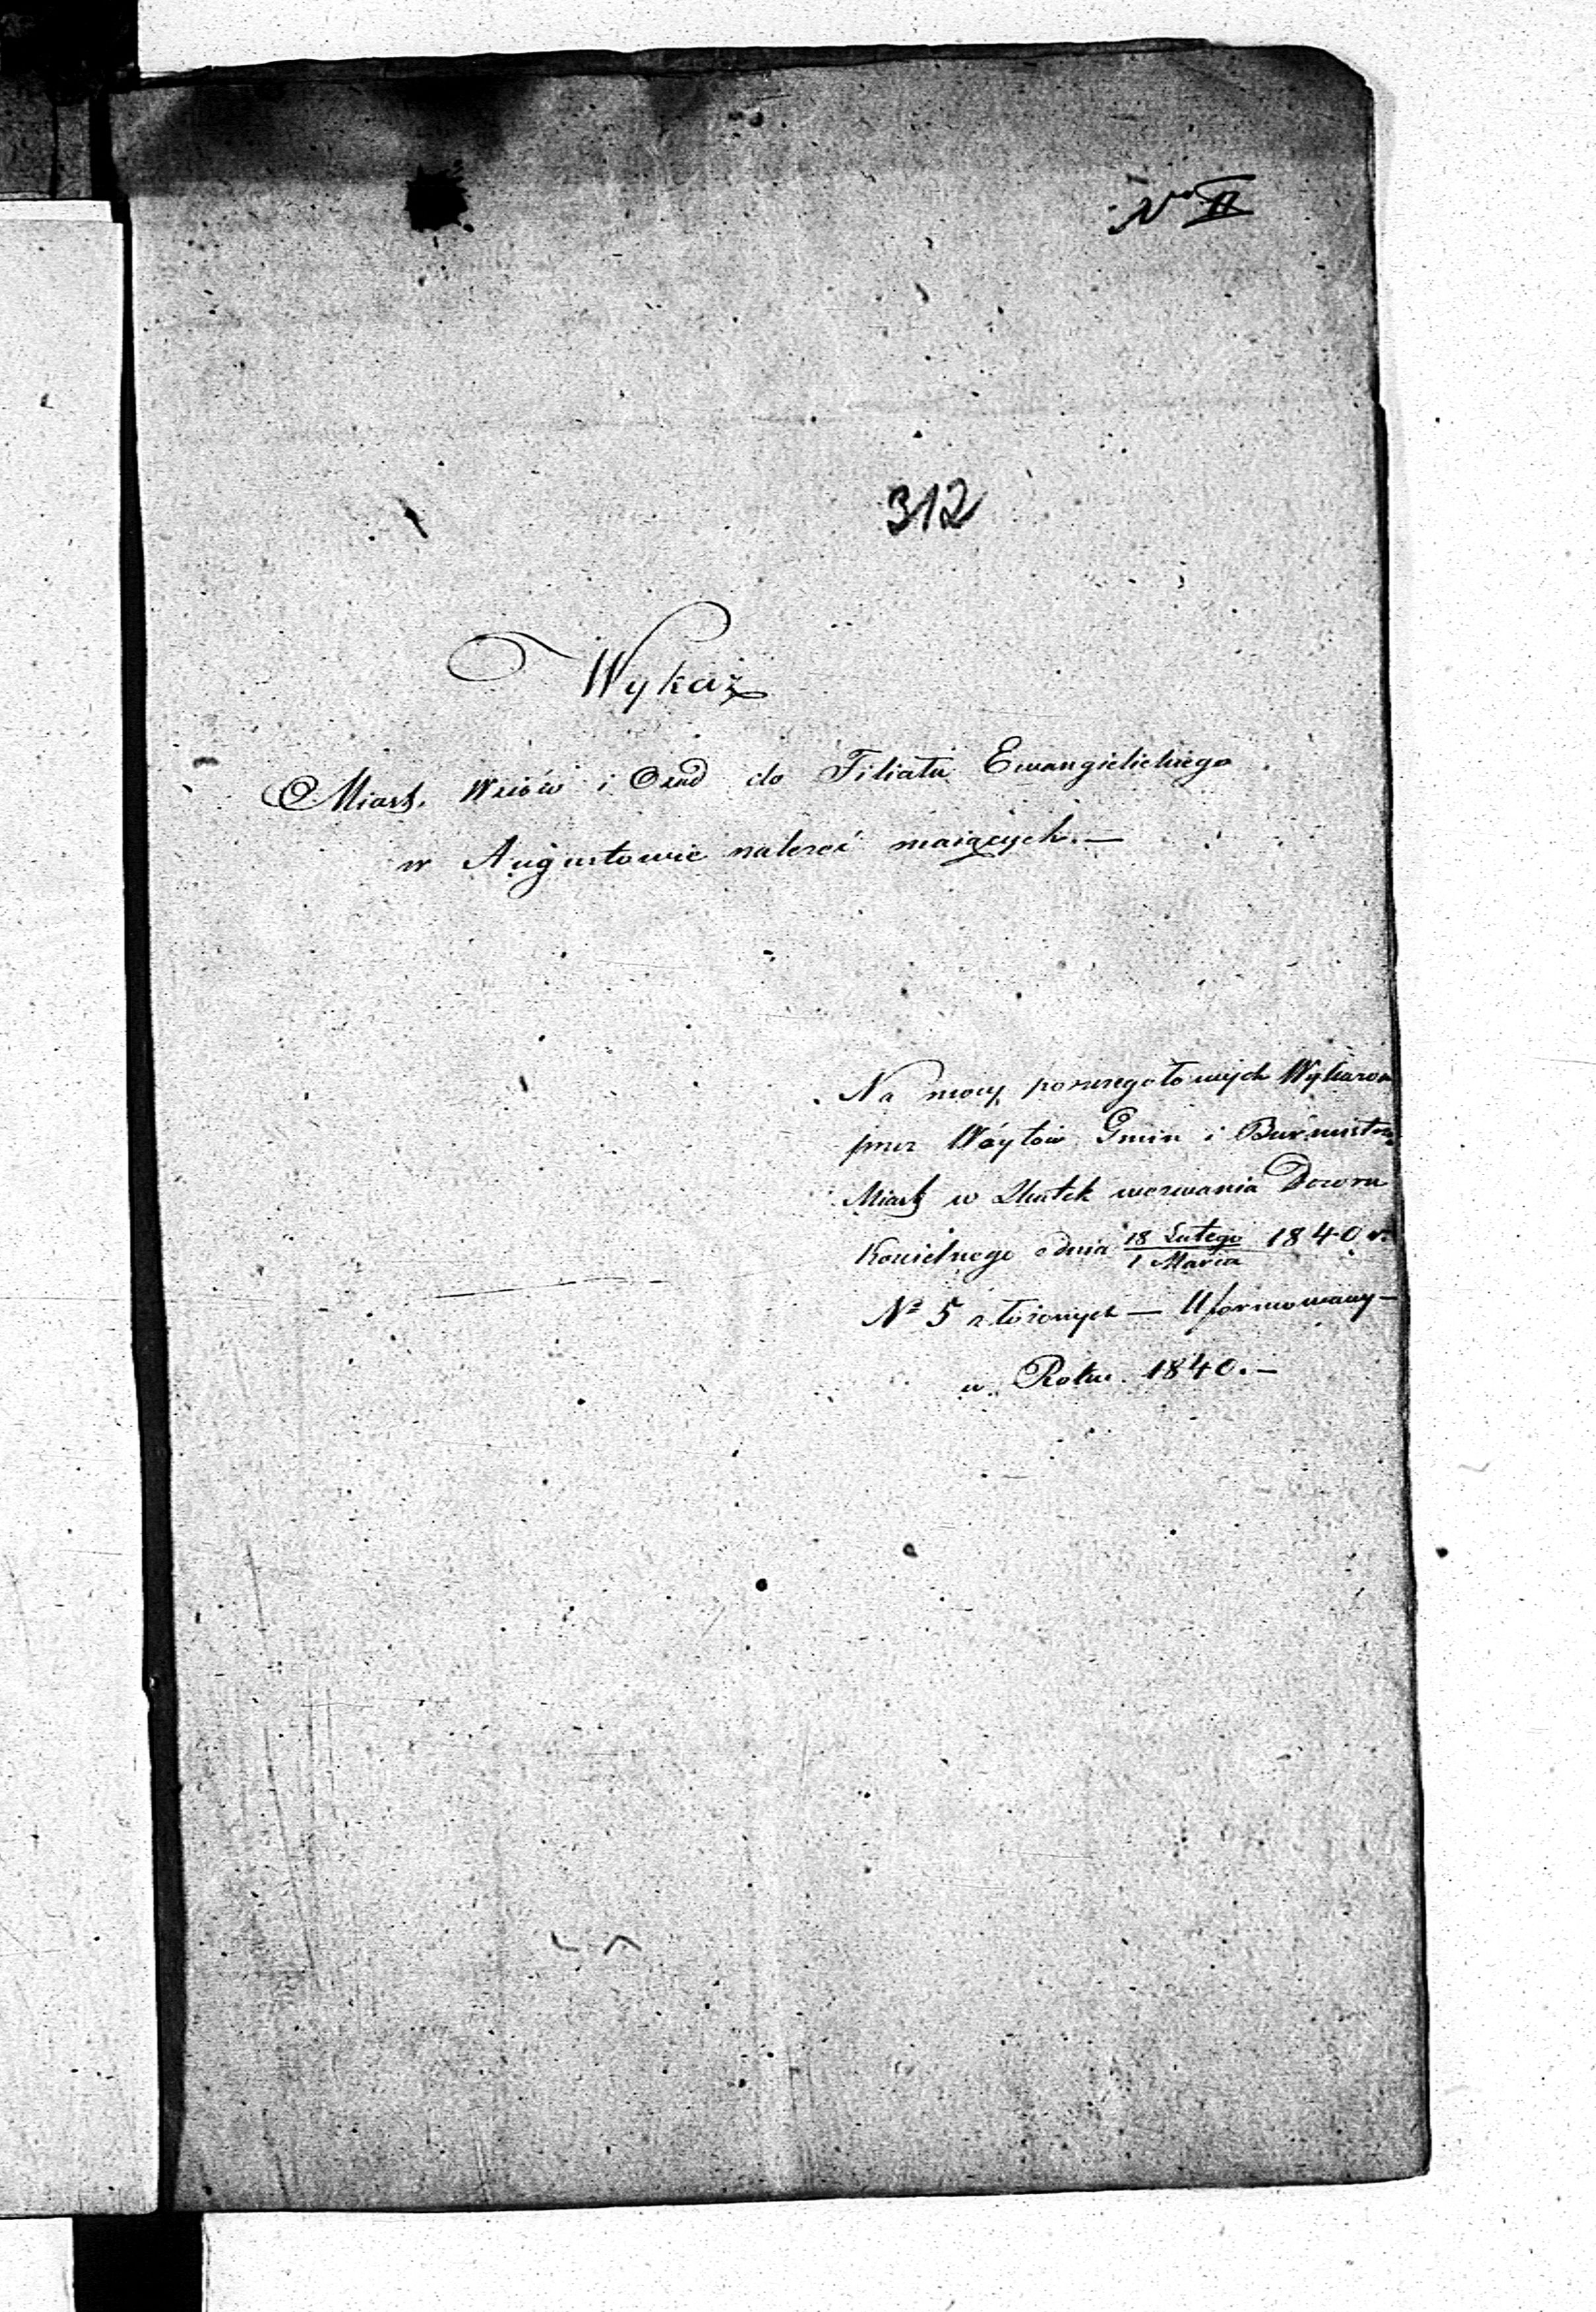 No II
312
Wykaz
Miast, Wsiów i Osad do Filiału Ewangielickiego
w Augustowie należeć maiących.—
Na mocy poszczegółowych Wykazow
przez Wóytów Gmin i Burmistrz
Miast w Skutek wezwania Dozoru
Kościelnego z dnia 18 Lutego / 1 Marca 1840 r.
No 5 złożonych — Uformowany —
w Roku 1840.—